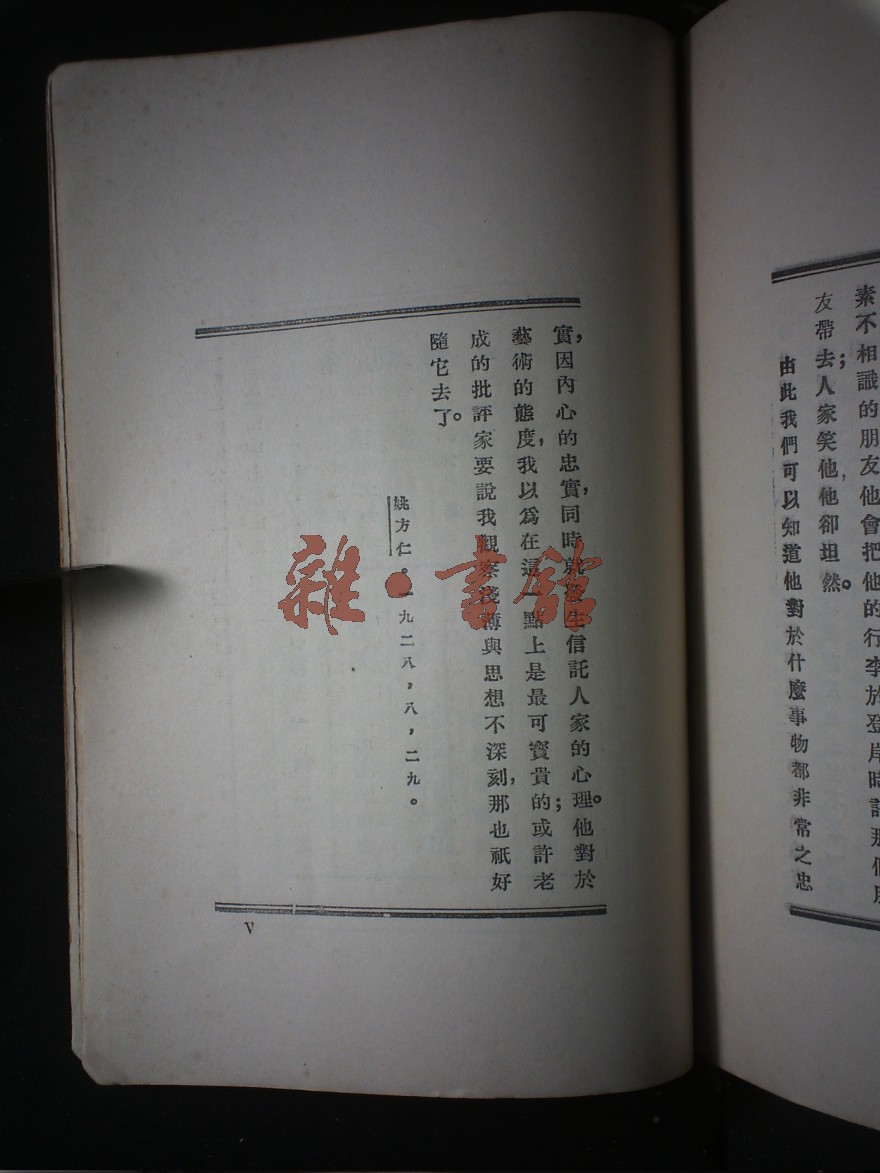 素不相識的朋友他會把他的行李於登岸時託那個朋
友帶去;人家笑他,他卻坦然。
由此我們可以知道他對於什麼事物都非常之忠
實,因內心的忠實,同時就發生信託人家的心理。他對於
藝術的態度,我以爲在這一點上是最可寶貴的;或許老
成的批評家要說我觀察淺薄與思想不深刻,那也祇好
隨它去了。
姚方仁。一九二八,八,二九。
V
雜·書舘